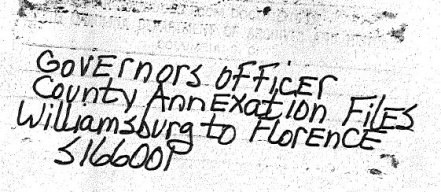 Governors officer
County Annexation Files
Williamsburg to Florence
S16600P